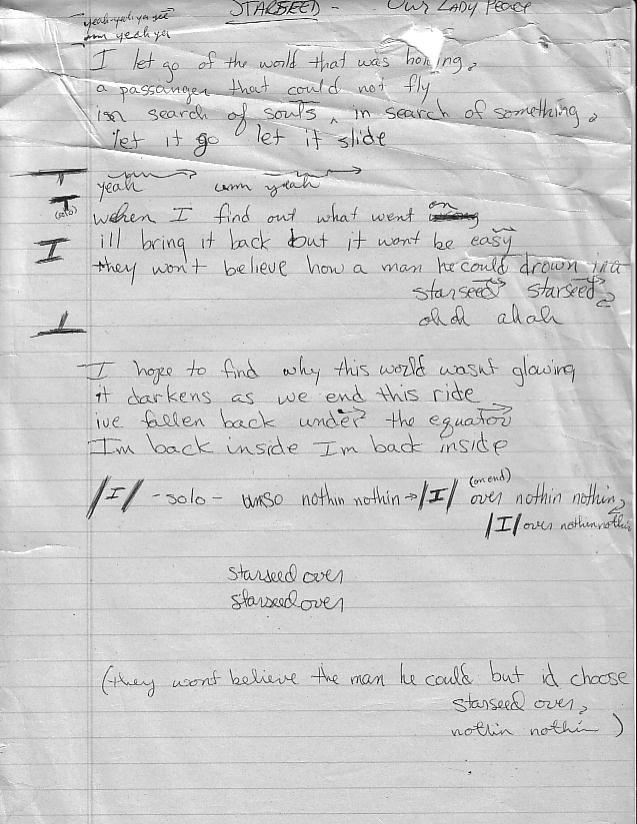 STARSEED - Our Lady Peace
yeah yeah ya yee
umm yeah yea
I let go of the world that was holing,
a passanger that could not fly
in search of souls, in search of something,
let it go let it slide
yeah umm yeah
(solo)
when I find out what went on
ill bring it back but it wont be easy
they won't believe how a man he could drown in a
starseed starseed,
ohoh ahah
I hope to find why this world wasnt glowing
it darkens as we end this ride
ive fallen back under the equator
Im back inside Im back inside
/I/ - solo - nothin nothin → /I/ (on end) over nothin nothin,
/I/ over nothin nothin
starseed over
starseed over
(they wont believe the man he could but id choose
starseed over,
nothin nothin)